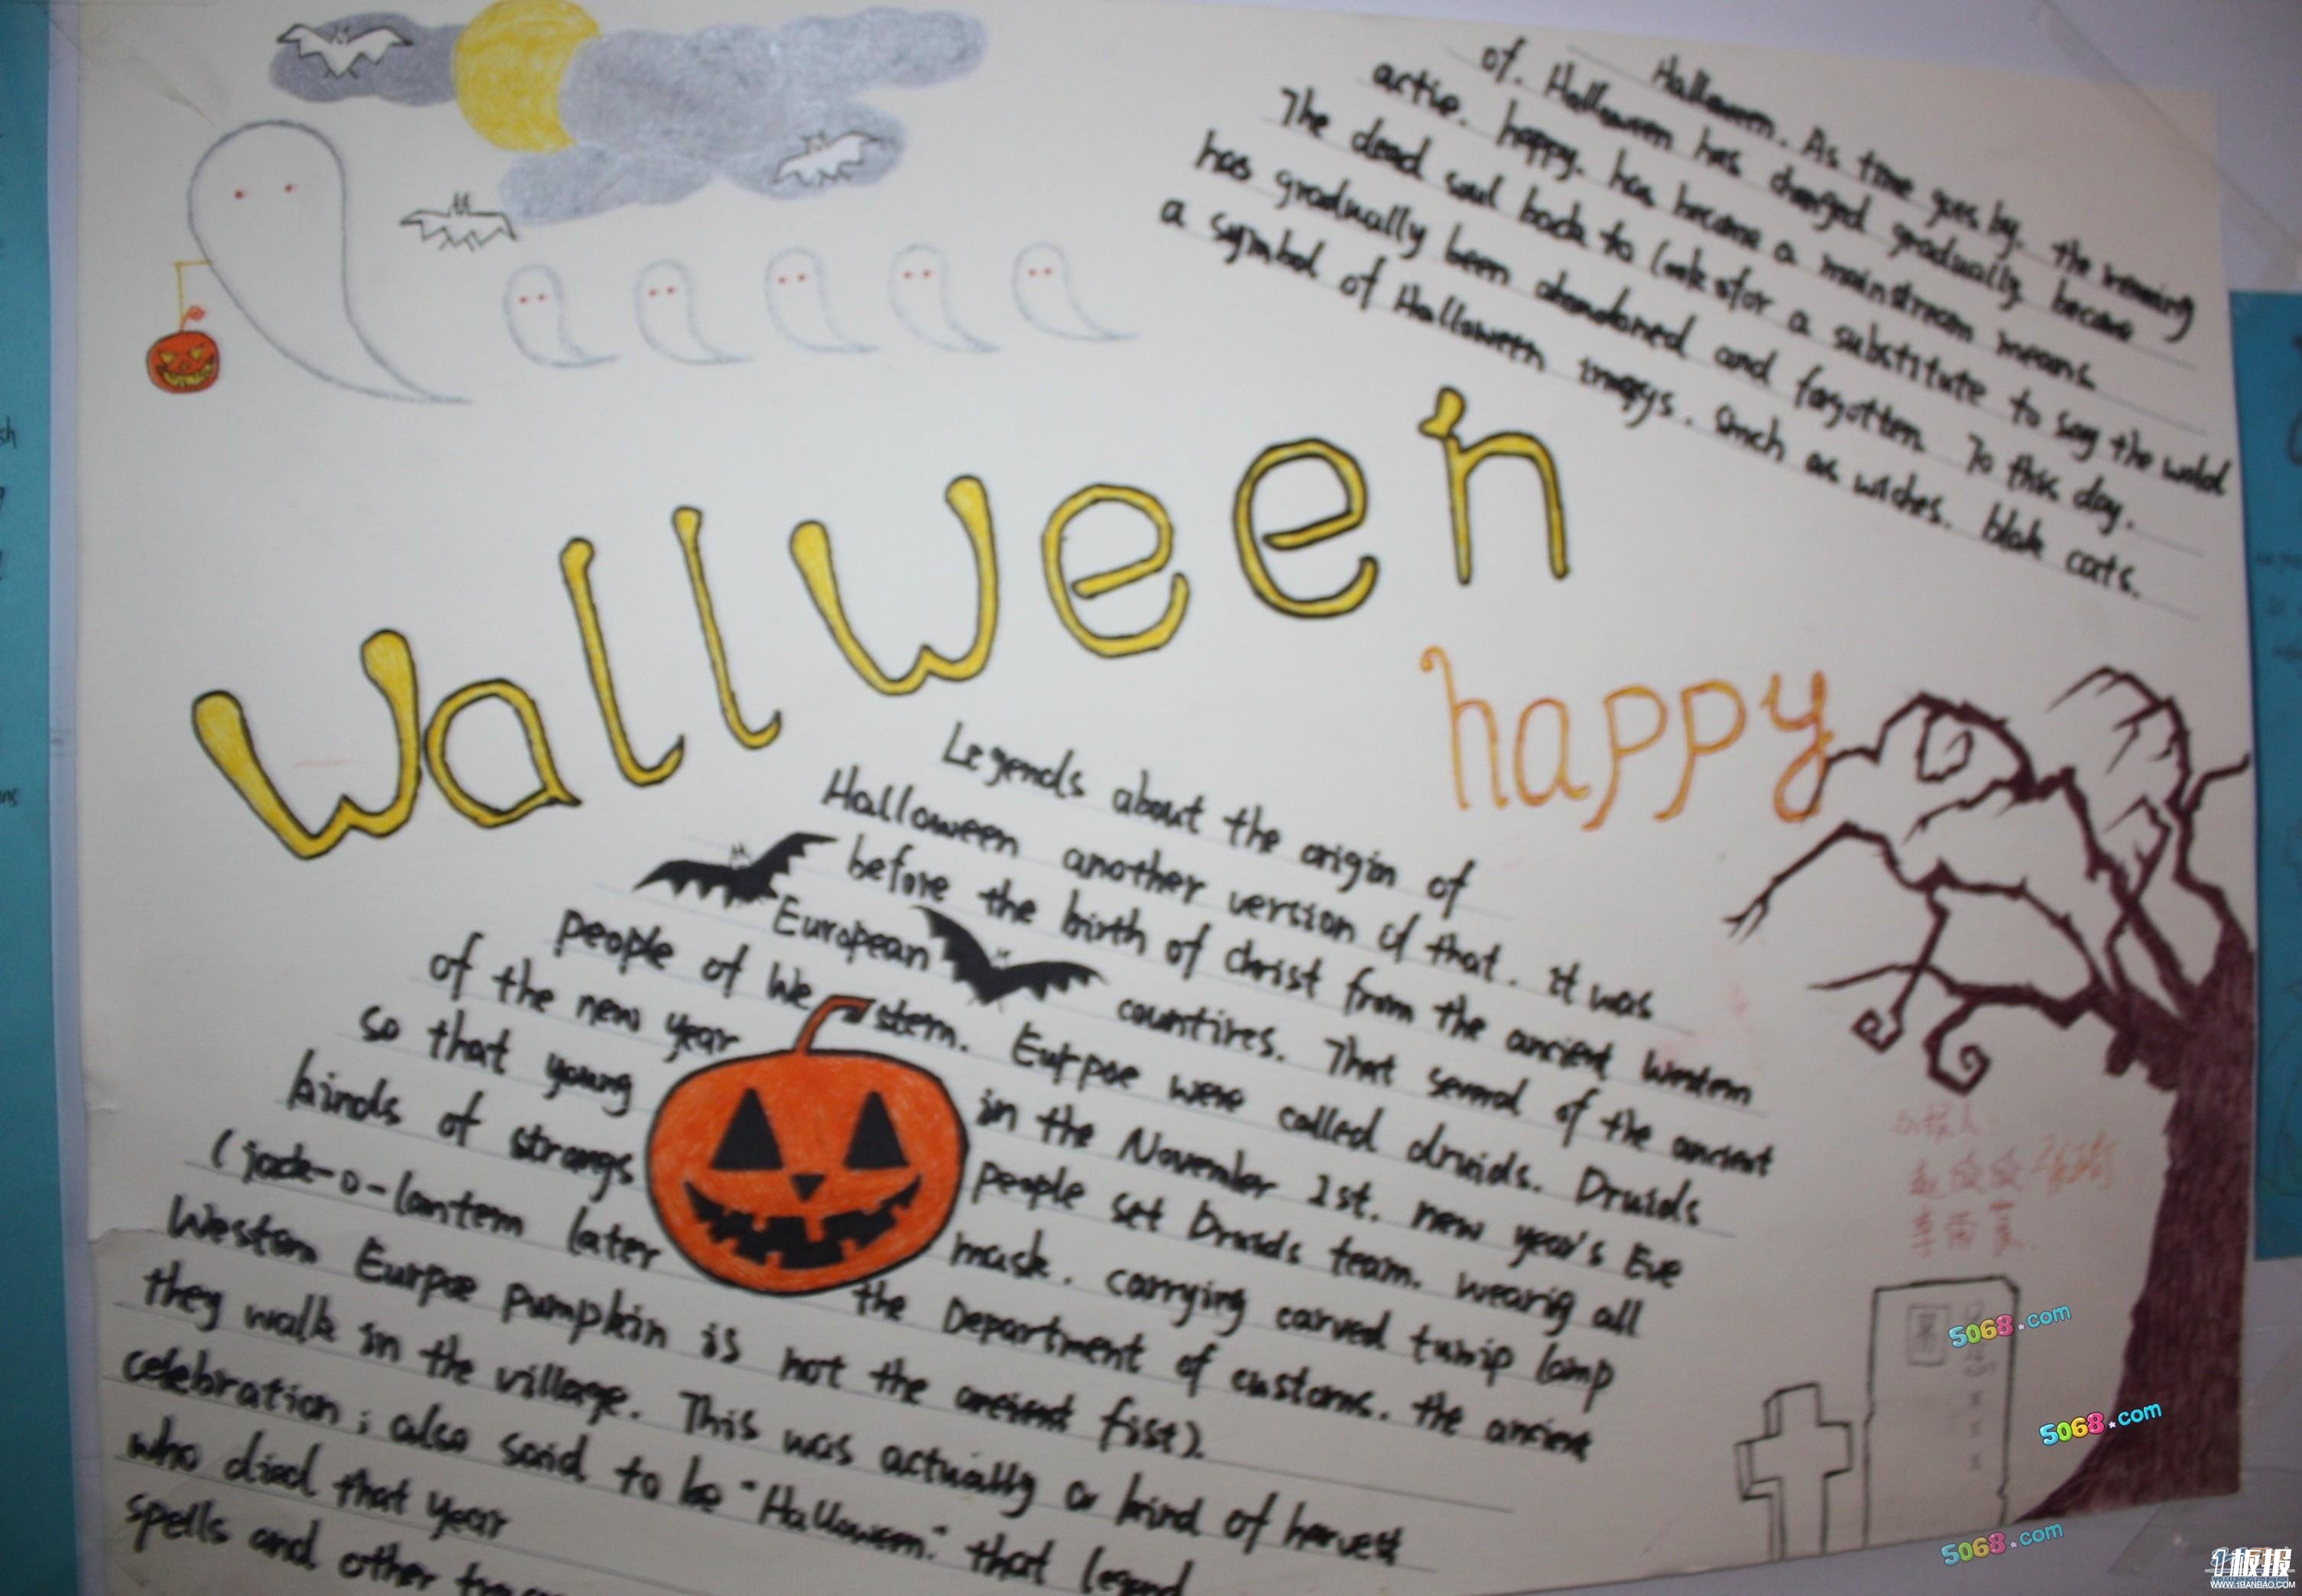 Halloween. As time goes by. the meaning
of. Halloween has changed gradually become
active. happy. has become a mainstream means
The dead soul back to looksfor a substitute to say the wold
has gradually been abandoned and forgotten To this day.
a symbol of Halloween imagys. Such as wiches. blak cats.
Wallween
happy
Legends about the origin of
Halloween another version of that. it was
before the birth of christ from the ancient Western
European countires. That several of the ancient
people of Western. Eurpoe were called druids. Druids
of the new year in the November 1st. new year's Eve
so that young people set Druids team. wearig all
kinds of strangs mask. carrying carved turnip lamp
(jack-o-lantern later the Department of customs. the ancient
Western Eurpoe pumpkin is not the ancient fist).
they walk in the village. This was actually a kind of harvest
celebration; also said to be "Halloween." that legend
who died that year
spells and other
小报人
李雨
5068.com
5068.com
5068.com
1板报
WWW.1BANBAO.COM